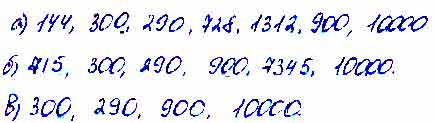 а) 144, 300, 290, 728, 1312, 900, 10000
б) 715, 300, 290, 900, 7345, 10000.
в) 300, 290, 900, 10000.